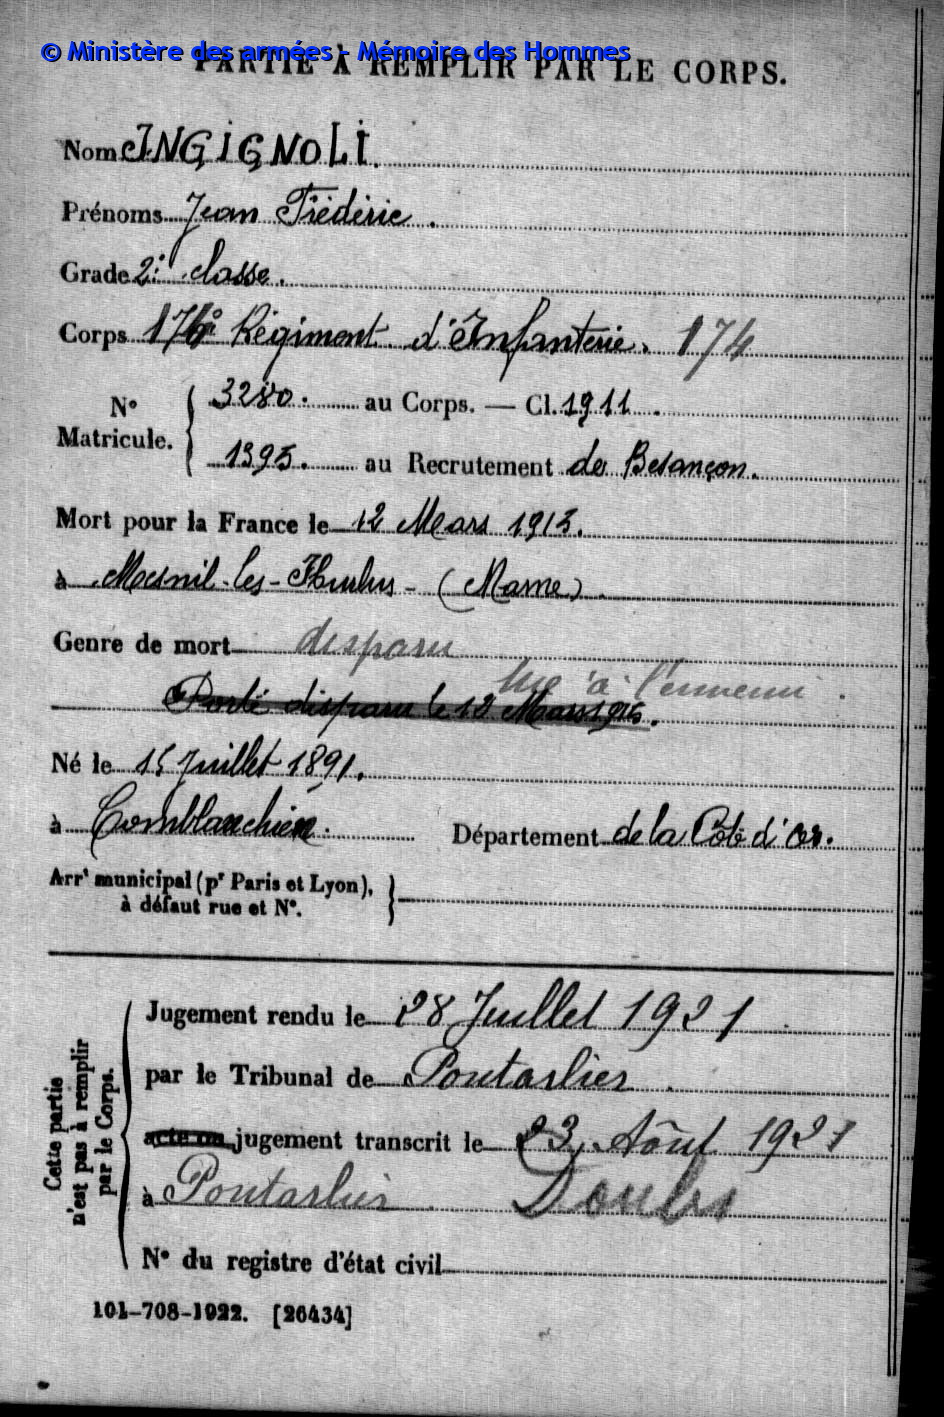 © Ministère des armées - Mémoire des Hommes
PARTIE À REMPLIR PAR LE CORPS.
Nom INGIGNOLI.
Prénoms Jean Frédéric.
Grade 2e classe.
Corps 174e Régiment d'Infanterie. 174
N° Matricule. { 3280. au Corps. — Cl. 1911.
1395. au Recrutement de Besançon.
Mort pour la France le 12 Mars 1915.
à Mesnil-les-Hurlus - (Marne).
Genre de mort disparu
tué à l'ennemi.
Porté disparu le 12 Mars 1915.
Né le 15 Juillet 1891.
à Comblanchien. Département de la Côte d'Or.
Arrt municipal (pr Paris et Lyon),
à défaut rue et N°.
Cette partie n'est pas à remplir par le Corps.
Jugement rendu le 28 Juillet 1921
par le Tribunal de Pontarlier
acte ou jugement transcrit le 23 Août 1921
à Pontarlier Doubs
N° du registre d'état civil
101-708-1922. [26434]